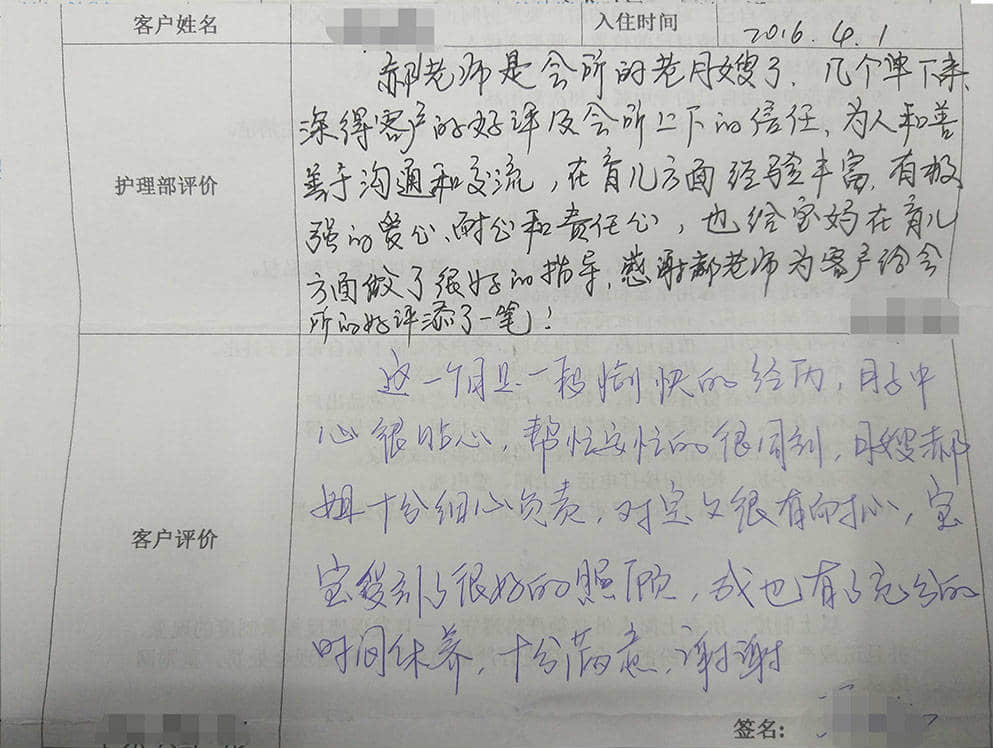 客户姓名
入住时间
2016.4.1
护理部评价
郝老师是会所的老月嫂了，几个单下来、
深得客户的好评及会所上下的信任、为人和善
善于沟通和交流，在育儿方面经验丰富，有极
强的爱心、耐心和责任心，也给宝妈在育儿
方面做了很好的指导，感谢郝老师为客户给会
所的好评添了一笔！
客户评价
这一个月是一段愉快的经历，月子中
心很贴心，帮忙安忙的很周到，月嫂郝
姐十分细心负责，对宝文很有耐心，宝
宝得到了很好的照顾，我也有了充分的
时间休养，十分满意，谢谢
签名: